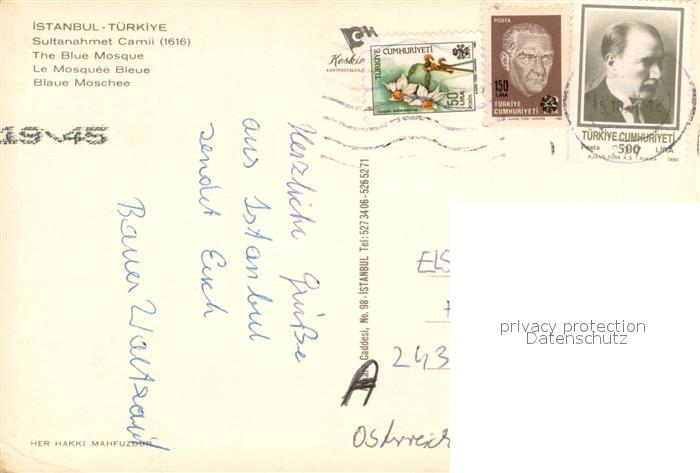 İSTANBUL - TÜRKİYE
Sultanahmet Camii (1616)
The Blue Mosque
Le Mosquée Bleue
Blaue Moschee
Keskin
KARTPOSTALCILIK
TÜRKİYE CUMHURİYETİ
50 LİRA
POSTA
150
LİRA
TÜRKİYE
CUMHURİYETİ
TÜRKİYE CUMHURİYETİ
Posta 500 LİRA
AJANS-TÜRK A.Ş. Ankara 1990
19.45
Herzliche Grüße
aus Istanbul
sendet Euch
Bauer Waltraud
Caddesi, No. 98 - İSTANBUL Tel: 5273406-5265271
ELS
243
A
Österreich
privacy protection
Datenschutz
HER HAKKI MAHFUZDUR